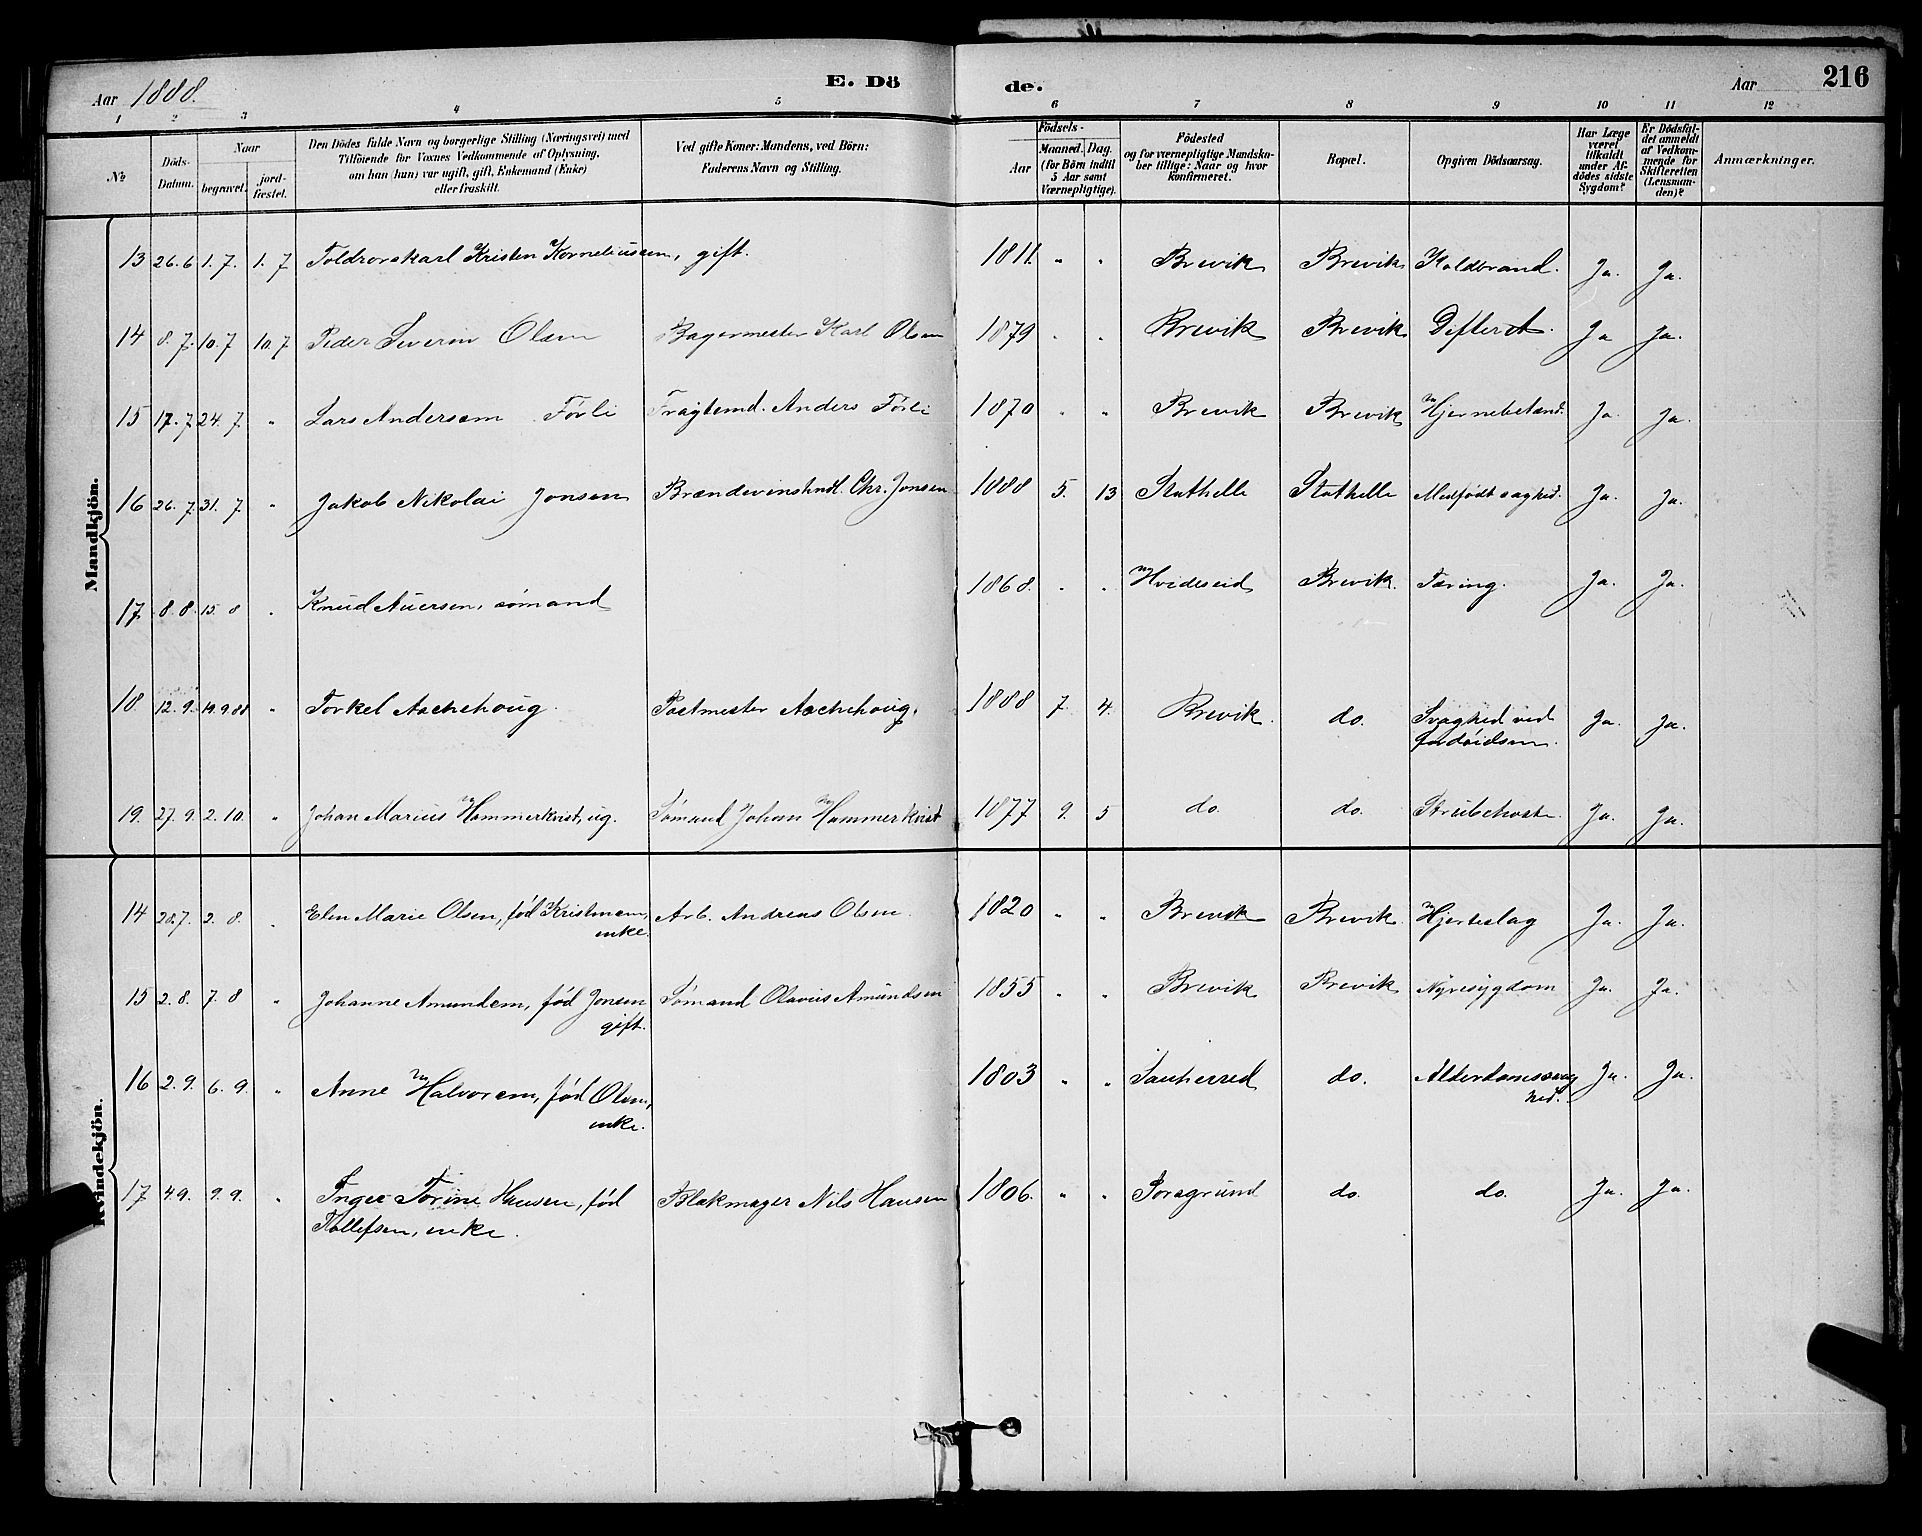 Aar 1888. E. Dö de. Aar 216
1 2 3 4 5 6 7 8 9 10 11 12
No Döds-Datum. Naar begravet. jord-fæstet. Den Dödes fulde Navn og borgerlige Stilling (Næringsvei) med Tilföiende for Voxnes Vedkommende af Oplysning, om han (hun) var ugift, gift, Enkemand (Enke) eller fraskilt. Ved gifte Koner: Mandens, ved Börn: Faderens Navn og Stilling. Födsels- Aar Maaned. Dag. (for Börn indtil 5 Aar samt Værnepligtige). Födested og for værnepligtige Mandskaber tillige: Naar og hvor konfirmeret. Bopæl. Opgiven Dödsaarsag. Har Læge været tilkaldt under Afdödes sidste Sygdom? Er Dödsfaldet anmeldt af Vedkommende for Skifteretten (Lensmanden)? Anmærkninger.
Mandkjön.
13 26.6 1.7. 1.7 Toldrorskarl Kristen Korneliussen, gift. 1811. " " Brevik Brevik Koldbrand. Ja. Ja.
14 8.7. 10.7 10.7 Peder Severin Olsen Bagermester Karl Olsen 1879 " " Brevik Brevik Difterit. Ja Ja.
15 17.7 24.7. " Lars Andersen Førli Fragtemd. Anders Førli 1870 " " Brevik Brevik Hjernebetænd. Ja. Ja.
16 26.7. 31.7 " Jakob Nikolai Jonsen Brændevinshndl. Chr. Jonsen 1888 5. 13 Stathelle Stathelle Medfødt svaghed. Ja. Ja.
17. 8.8. 15.8 " Knud Auersen, sømand 1868. " " Hvideseid Brevik. Tæring. Ja. Ja.
18. 12.9. 19.9.88 " Torkel Aschehoug. Postmester Aschehoug. 1888 7. 4. Brevik. do. Svaghed ved
fødselen. Ja. Ja.
19. 27.9. 2.10. " Johan Marius Hammerkvist, ug. Sømand Johan Hammerkvist 1877 9. 5 do. do. Strubehoste Ja. Ja.
Kvindekjön.
14 28.7. 2.8. " Elen Marie Olsen, fød Kristensen, Arb. Andreas Olsen. 1820 " " Brevik Brevik. Hjerteslag Ja. Ja.
enke.
15 2.8. 7.8 " Johanne Amundsen, fød Jonsen Sømand Olavus Amundsen 1855 " " Brevik Brevik Nyresygdom Ja. Ja.
gift.
16 2.9. 6.9. " Anne Halvorsen, fød Olsen, 1803 " " Sauherred do. Alderdomssvag
hed. Ja. Ja.
enke.
17 4.9. 9.9. " Inger Torine Hansen, fød Blokmager Nils Hansen 1806. " " Porsgrund do. do. Ja. Ja.
Tollefsen, enke.